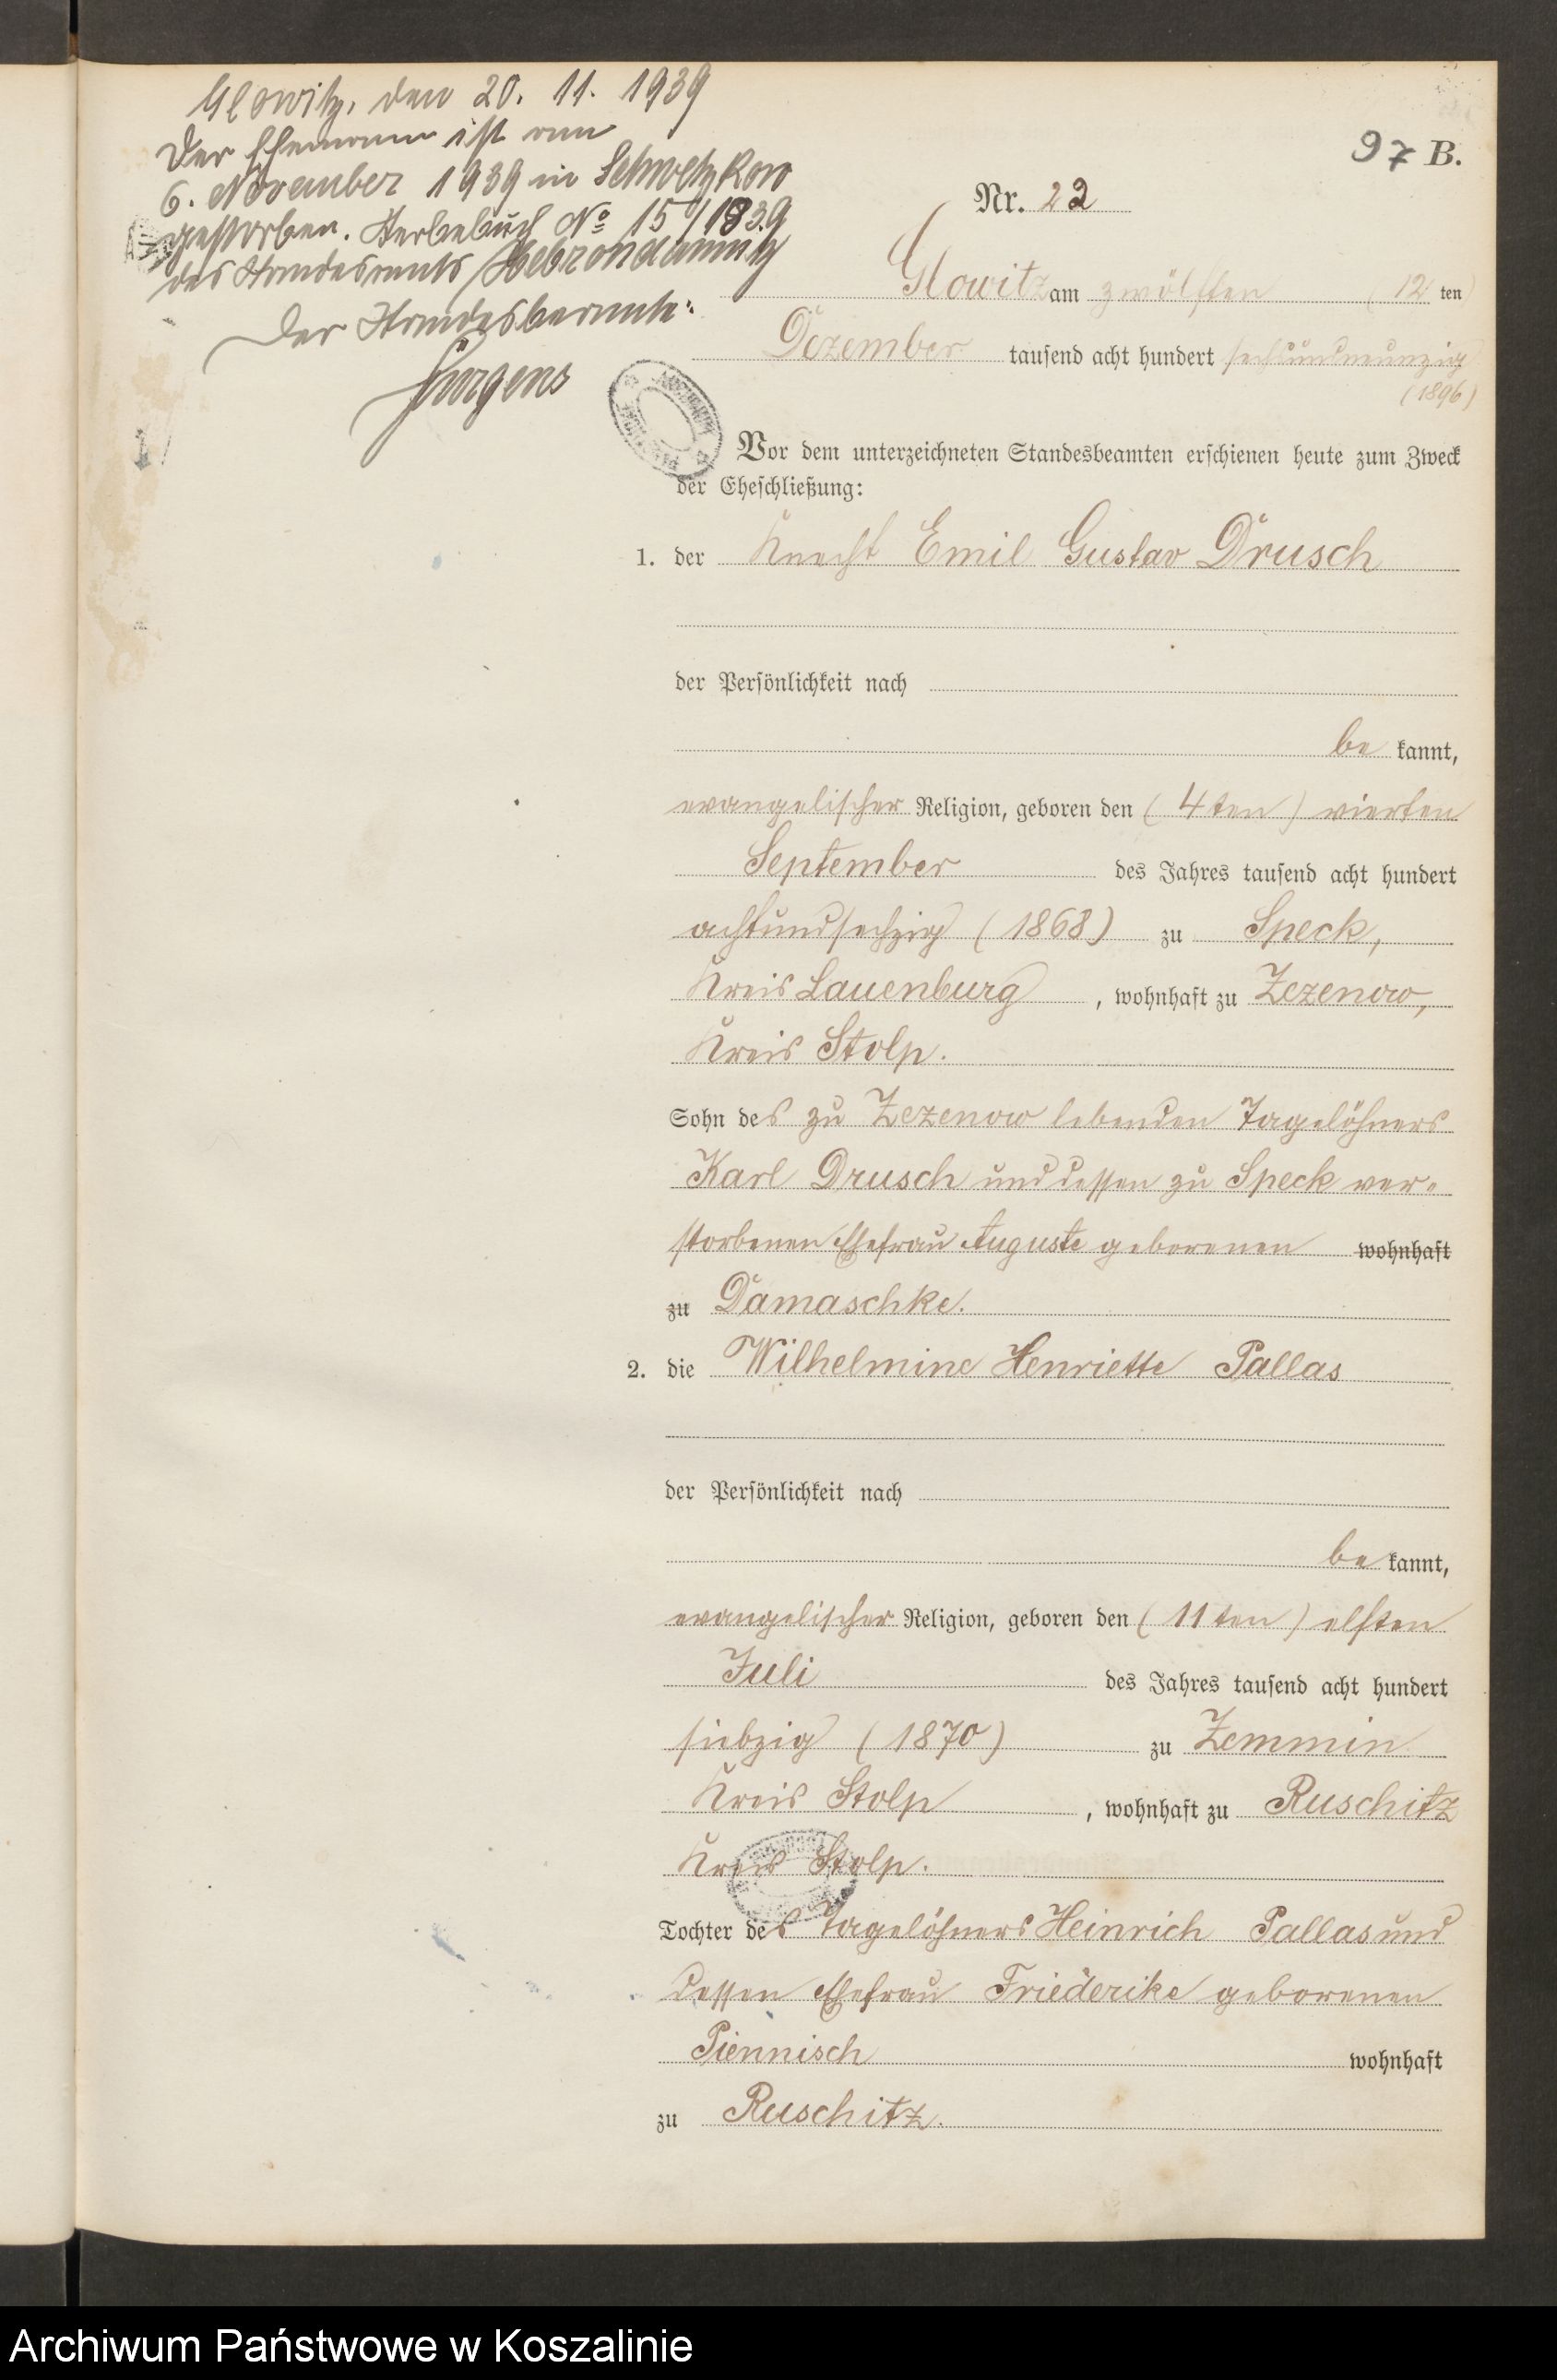 Glowitz, den 20. 11. 1939
Der Ehemann ist am
6. November 1939 in Schwetzkow
gestorben. Sterbebuch No 15/1939
des Standesamts Hebrondamnitz
Der Standesbeamte:
Jürgens
97 B.
Nr. 22
Glowitz am zwölften (12 ten)
Dezember tausend acht hundert sechsundneunzig
(1896)
Vor dem unterzeichneten Standesbeamten erschienen heute zum Zweck
der Eheschließung:
1. der Knecht Emil Gustav Drusch
der Persönlichkeit nach
be kannt,
evangelischer Religion, geboren den (4ten) vierten
September des Jahres tausend acht hundert
achtundsechzig (1868) zu Speck,
Kreis Lauenburg, wohnhaft zu Zezenow,
Kreis Stolp.
Sohn des zu Zezenow lebenden Tagelöhners
Karl Drusch und dessen zu Speck ver-
storbenen Ehefrau Auguste geborenen wohnhaft
zu Damaschke.
2. die Wilhelmine Henriette Pallas
der Persönlichkeit nach
be kannt,
evangelischer Religion, geboren den (11ten) elften
Juli des Jahres tausend acht hundert
siebzig (1870) zu Zemmin
Kreis Stolp, wohnhaft zu Ruschitz
Kreis Stolp.
Tochter des Tagelöhners Heinrich Pallas und
dessen Ehefrau Friederike geborenen
Piennisch wohnhaft
zu Ruschitz.
Archiwum Państwowe w Koszalinie